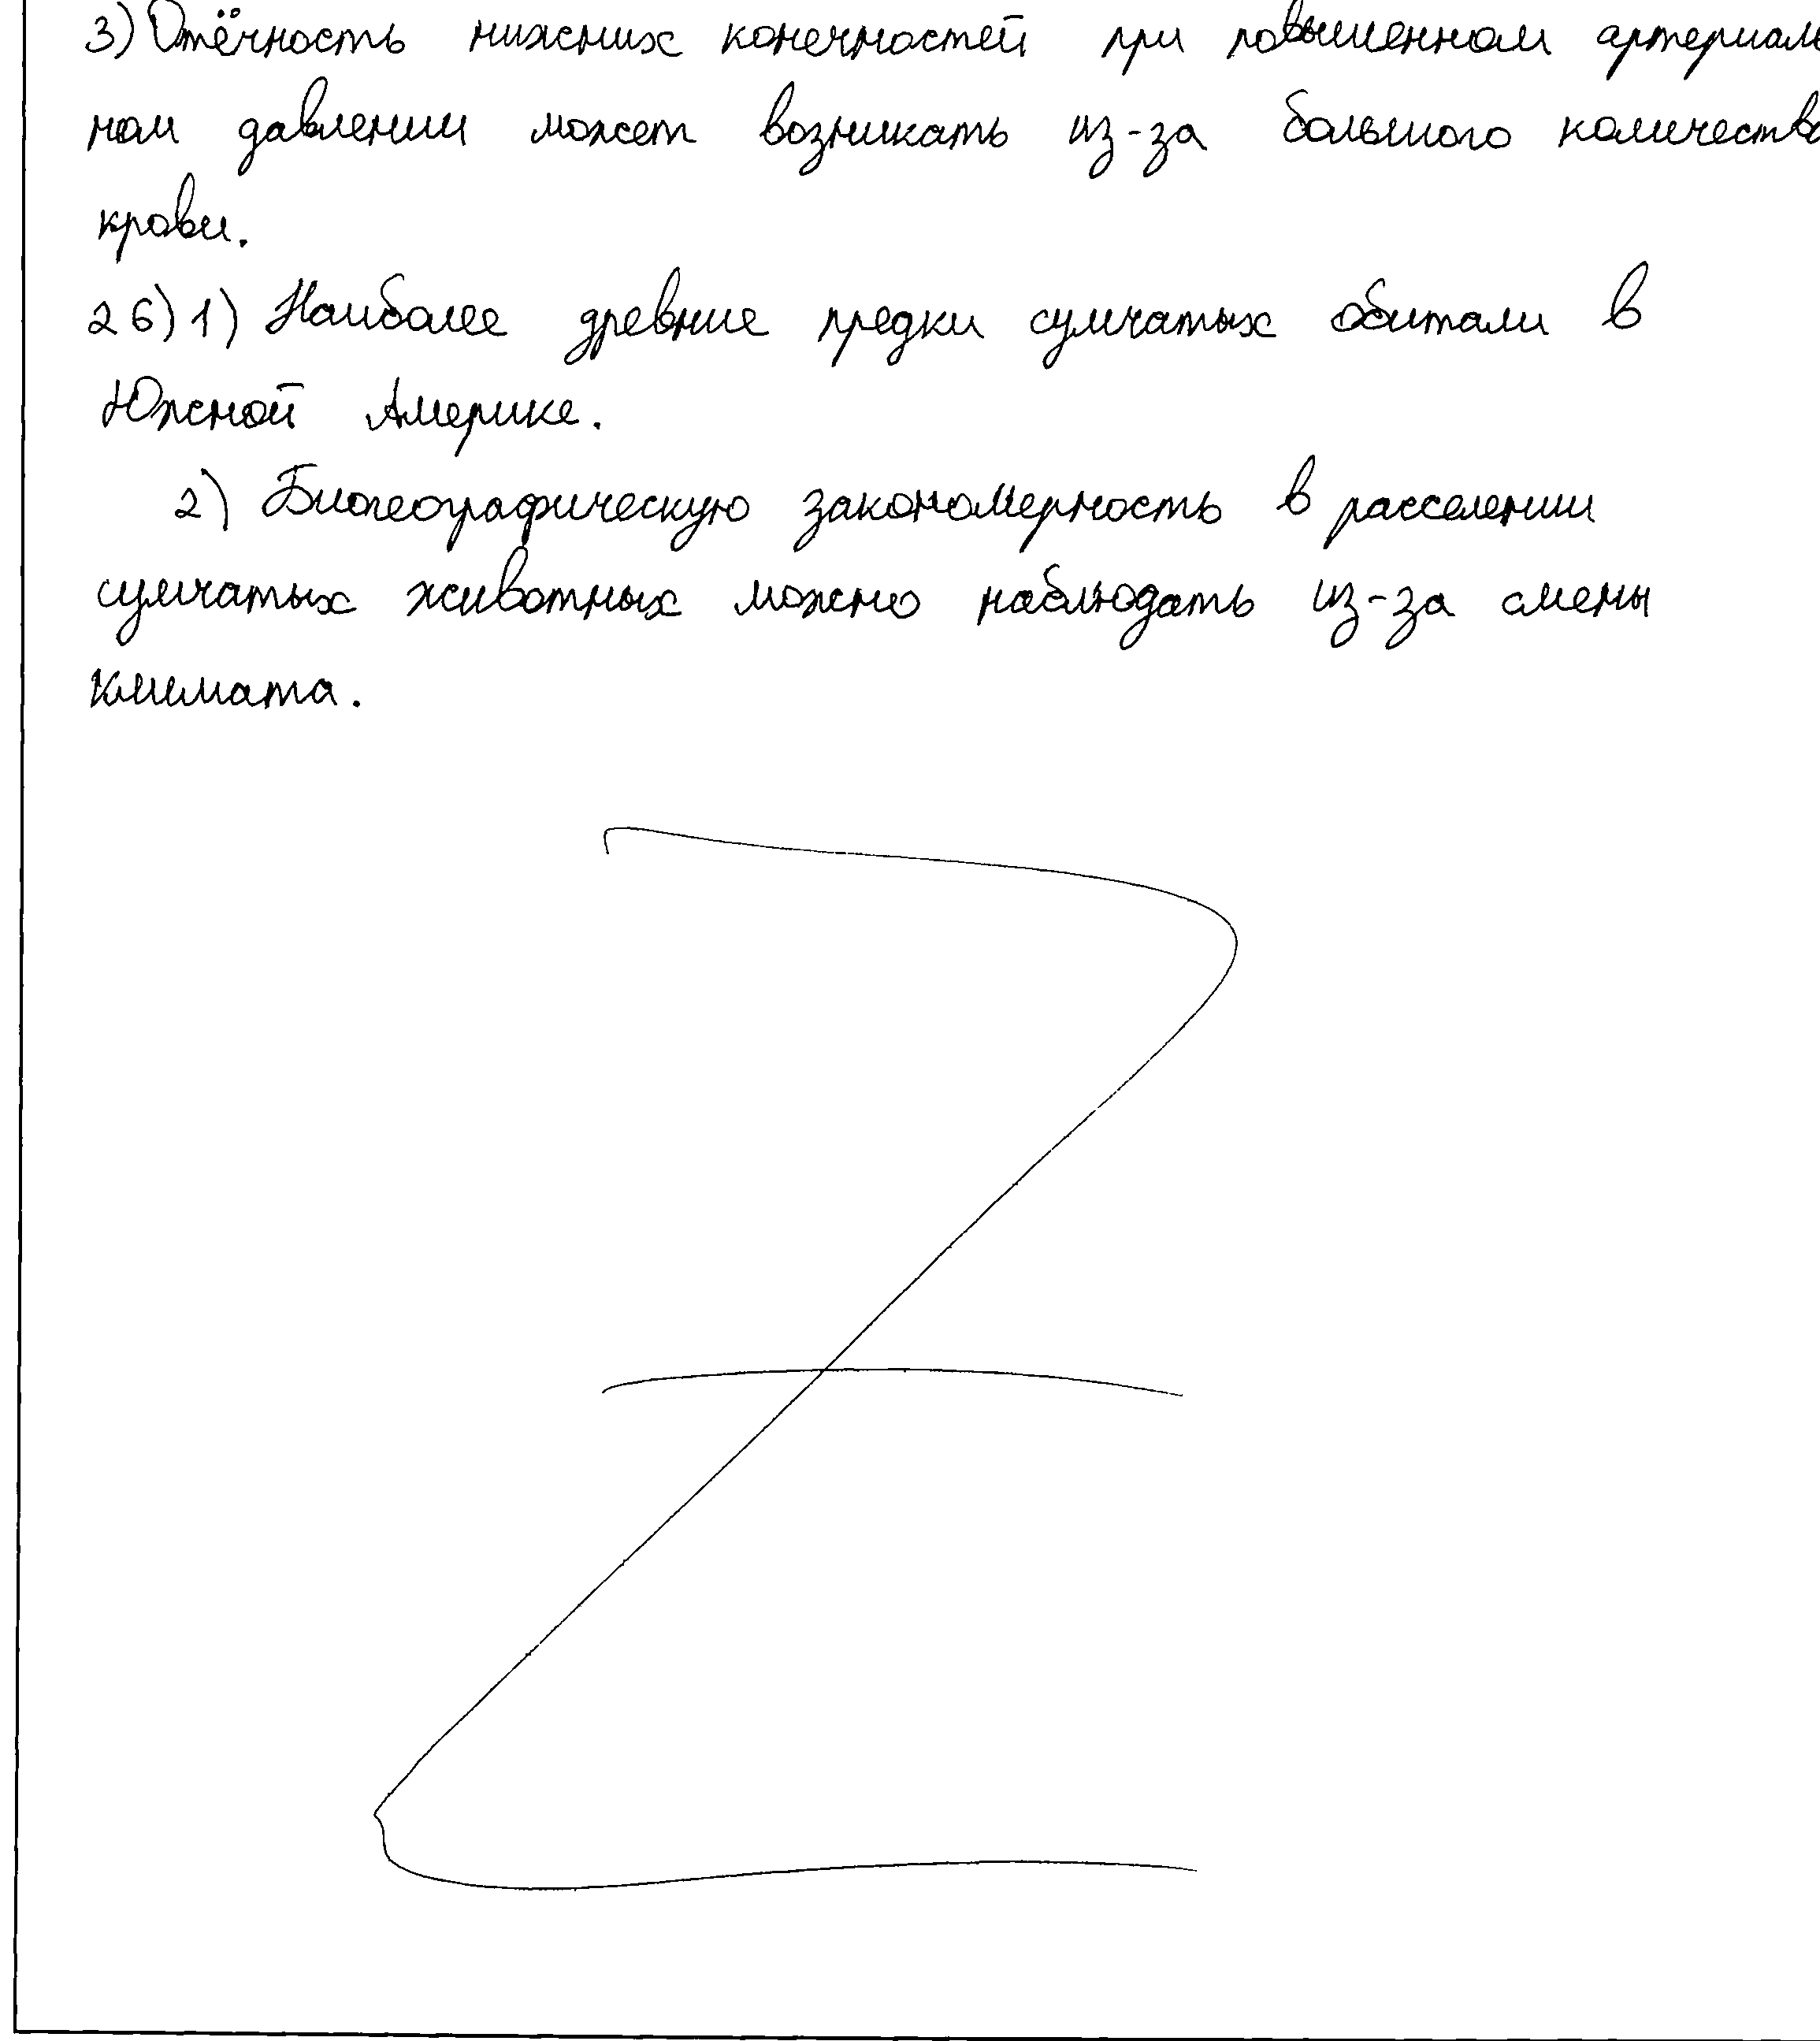 3) Отёчность нижних конечностей при повышенном артериаль
ном давлении может возникать из-за большого количества
крови.
26) 1) Наиболее древние предки сумчатых обитали в
Южной Америке.
2) Биогеографическую закономерность в расселении
сумчатых животных можно наблюдать из-за смены
климата.